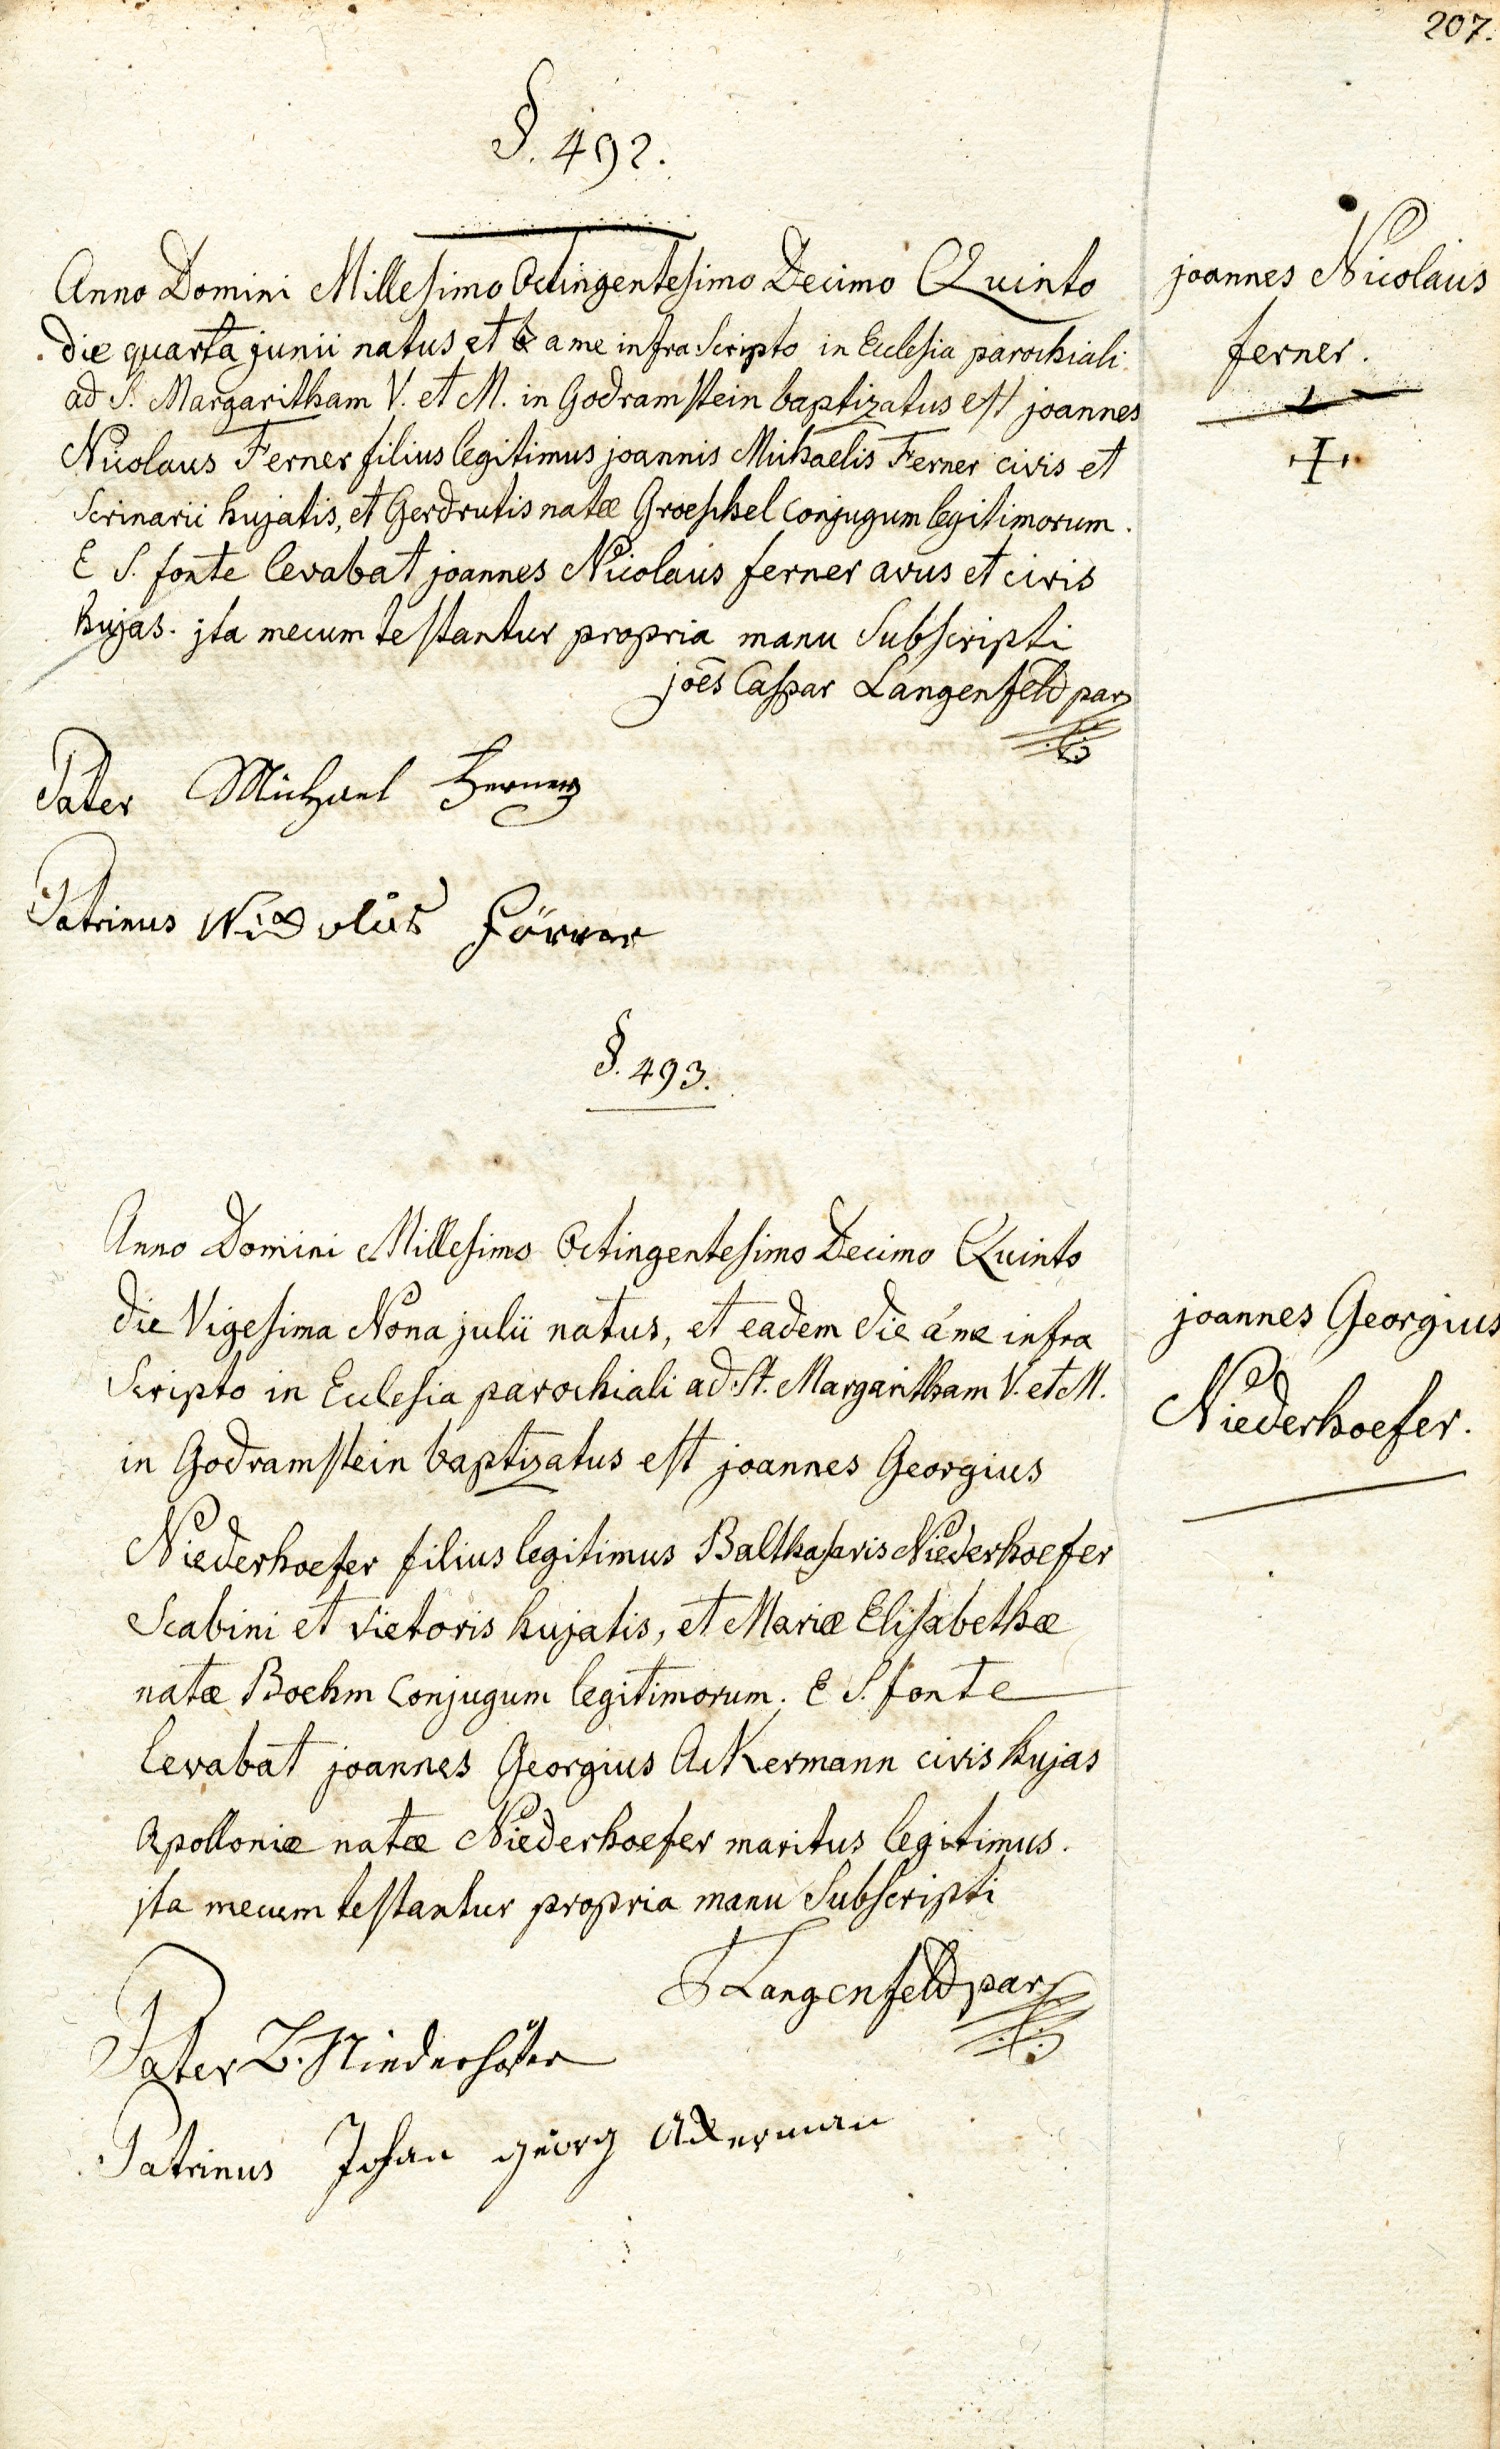 207.
§. 492.
Anno Domini Millesimo Octingentesimo Decimo Quinto
die quarta junii natus et a me infra Scripto in Ecclesia parochiali
ad S. Margaritham V. et M. in Godramstein baptizatus est joannes
Nicolaus Ferner filius legitimus joannis Michaelis Ferner civis et
Scrinarii hujatis, et Gerdrutis natæ Groeschel Conjugum legitimorum.
E S. fonte levabat joannes Nicolaus ferner avus et civis
hujas. jta mecum testantur propria manu Subscripti
joēs Caspar Langenfeld par
joannes Nicolaus
ferner.
Pater Michael Ferner
Patrinus Nickolus Förner
§. 493.
Anno Domini Millesimo Octingentesimo Decimo Quinto
die Vigesima Nona julii natus, et eadem die á me infra
Scripto in Ecclesia parochiali ad St. Margaritham V. et M.
in Godramstein baptizatus est joannes Georgius
Niederhoefer filius legitimus Balthasaris Niederhoefer
Scabini et vietoris hujatis, et Mariæ Elisabethæ
natæ Boehm Conjugum legitimorum. E S. fonte
levabat joannes Georgius Ackermann civis hujas
Apolloniæ natæ Niederhoefer maritus legitimus.
jta mecum testantur propria manu Subscripti
Langenfeld par
joannes Georgius
Niederhoefer.
Pater B. Niederhöfer
Patrinus Johan georg Ackerman